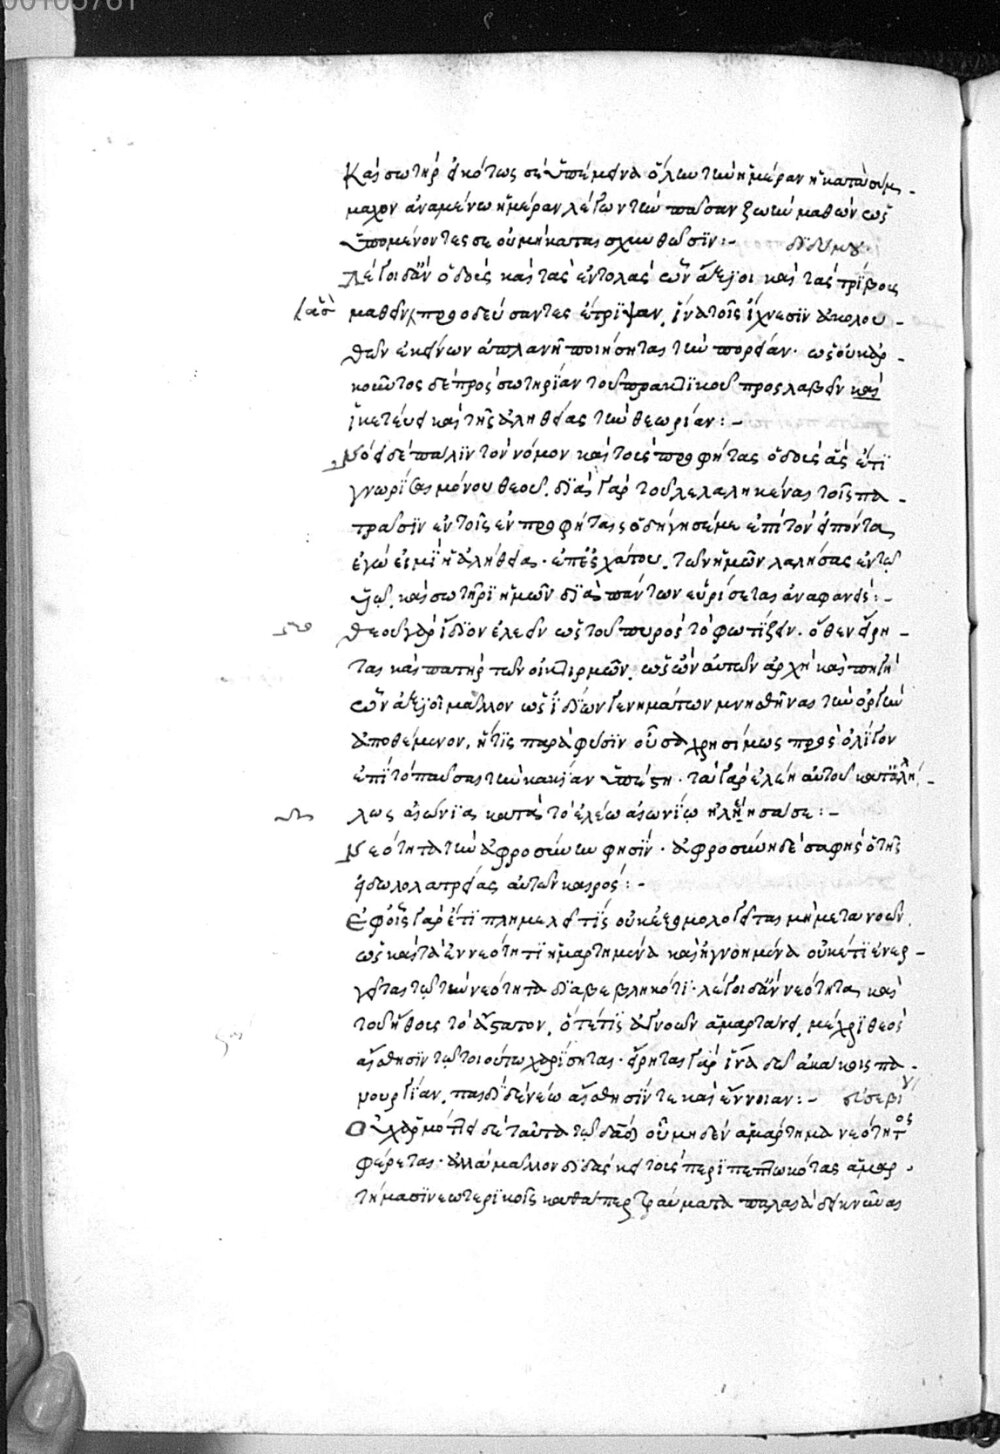 00105761
καὶ σωτὴρ εἰκότως σὲ ὑπέμεινα ὅλην τὴν ἡμέραν ἢ κατὰ σύμ-
μαχον ἀναμένω ἡμέραν λέγων τὴν πᾶσαν ζωὴν μαθὼν ὡς
ὑπομένοντές σε οὐ μὴ καταισχυνθῶσιν:- διδύμου
λέγοι δ' ἂν ὁδοὺς καὶ τὰς ἐντολὰς ὧν καὶ τὰς τρίβους
μαθεῖν προοδεύσαντες ἔτριψαν, ἵνα τοῖς ἴχνεσιν ἀκολου-
θῶν ἐκείνων ἀπλανῆ ποιήσηται τὴν πορείαν. ὡς οὐκ ἀρ-
κοῦντος δὲ πρὸς σωτηρίαν τοῦ πρακτικοῦ προσλαβεῖν καὶ
ἱκετεύει καὶ τῆς ἀληθείας τὴν θεωρίαν:-
Νόει δὲ πάλιν τὸν νόμον καὶ τοὺς προφήτας ὁδοὺς ἃς ἐπι
γνωρίσαι μόνου θεοῦ. διὰ γὰρ τοῦ λελαληκέναι τοῖς πα-
τράσιν ἐν τοῖς ἐν προφήταις ὁδήγησέ με ἐπὶ τὸν εἰπόντα
ἐγώ εἰμι ἡ ἀλήθεια. ἐπ' ἐσχάτου τῶν ἡμερῶν λαλήσας ἐν τῷ
υἱῷ, καὶ σωτῆρι ἡμῶν διὰ πάντων εὑρίσεται ἀναφανείς:-
Θεοῦ γὰρ ἴδιον ἐλεεῖν ὡς τοῦ πυρὸς τὸ φωτίζειν. ὅθεν εἴρη-
ται καὶ πατὴρ τῶν οἰκτιρμῶν, ὡς ὢν αὐτῶν ἀρχὴ καὶ πηγὴ
ὧν μᾶλλον ὡς ἰδίων γεννημάτων μνησθῆναι τὴν ὀργὴν
ἀποθέμενον, ἥτις παρὰ φύσιν οὖσα χρησίμως πρὸς ὀλίγον
ἐπὶ τὸ παῦσαι τὴν κακίαν ὑπέστη. τὰ γὰρ ἐλέη αὐτοῦ καταλλή-
λως αἰώνια κατὰ τὸ ἐλέω αἰωνίῳ ἠλέησά σε:-
Νεότητα τὴν ἀφροσύνην φησίν. ἀφροσύνη δὲ σαφὴς ὁ τῆς
εἰδωλολατρείας αὐτῶν καιρός:-
Ἐφ' οἷς γὰρ ἔτι πλημμελεῖ τίς οὐκ ἐξομολογεῖται μὴ μετανοῶν
ὡς καὶ τὰ ἐν νεότητι ἡμαρτημένα καὶ ἠγνοημένα οὐκέτι ἐνερ-
γεῖται τῷ τὴν νεότητα διαβεβληκότι. λέγοι δ' ἂν νεότητα καὶ
τοῦ ἤθους τὸ ἄστατον, ὁπότε τις ἀγνοῶν ἁμαρτάνει, μέχρι θεὸς
αἴσθησιν τῷ τοιούτῳ χαρίσηται. εἴρηται γὰρ ἵνα δῷ ἀκάκοις πα-
νουργίαν, παιδὶ δὲ νέῳ αἴσθησίν τε καὶ ἔννοιαν:- εὐσεβί
Οὐχ ἁρμόττει δὲ ταῦτα τῷ δαδ οὗ μηδὲν ἁμάρτημα νεότητος
φέρεται. ἀλλὰ μᾶλλον διδάσκει τοὺς περιπεπτωκότας ἁμαρ-
τήμασι νεωτερικοῖς καθάπερ τραύματα παλαιὰ δεικνῦναι